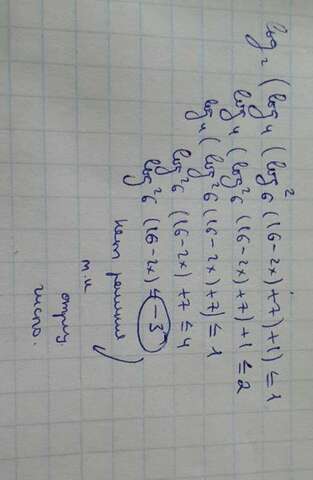 log₂ (log₄ (log₆² (16-2x)+7)+1) ≤ 1
log₄ (log²6 (16-2x)+7)+1 ≤ 2
log₄ (log²6 (16-2x)+7) ≤ 1
log²6 (16-2x)+7 ≤ 4
log²6 (16-2x) ≤ -3
нет решения
т.к
отриц.
число.